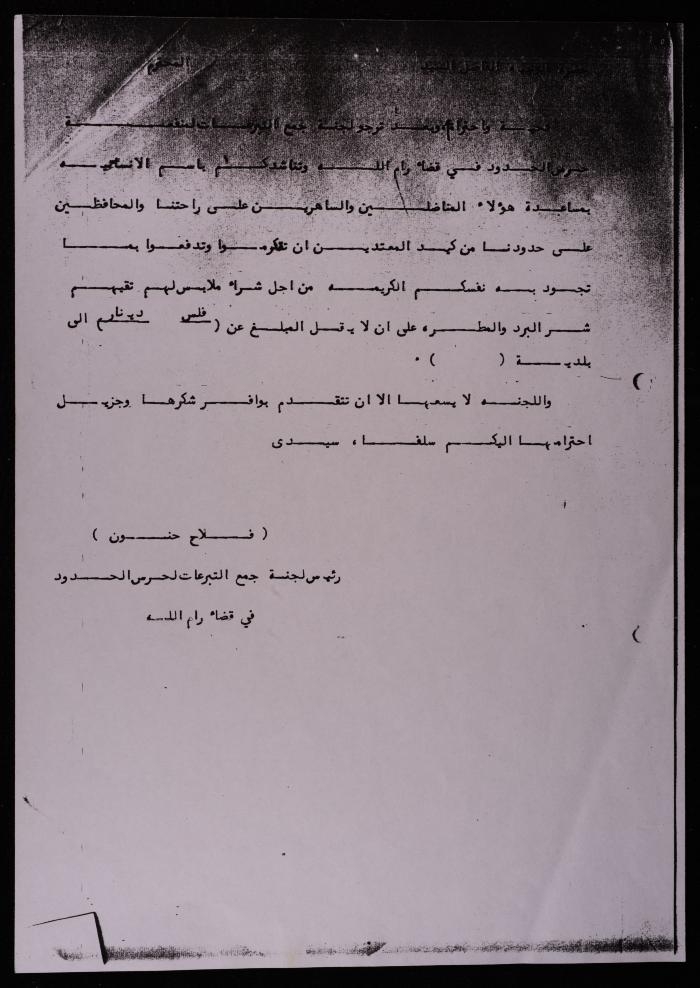 حضرة الفاضل السيد المحترم
تحية واحترام وبعد ترجو لجنة جمع التبرعات لمنفعة
حرس الحدود في قضاء رام الله وتناشدكم باسم الانسانيه
بمساعدة هؤلاء المناضلين والساهرين على راحتنا والمحافظين
على حدودنا من كيد المعتدين ان تتكرموا وتدفعوا بما
تجود به نفسكم الكريمه من اجل شراء ملابس لهم تقيهم
شر البرد والمطره على ان لا يقل المبلغ عن ( فلس دينار ) الى
بلدية ( ) .
واللجنه لا يسعها الا ان تتقدم بوافر شكرها وجزيل
احترامها اليكم سلفاء سيدى
( فلاح حنون )
رئيس لجنة جمع التبرعات لحرس الحدود
في قضاء رام الله